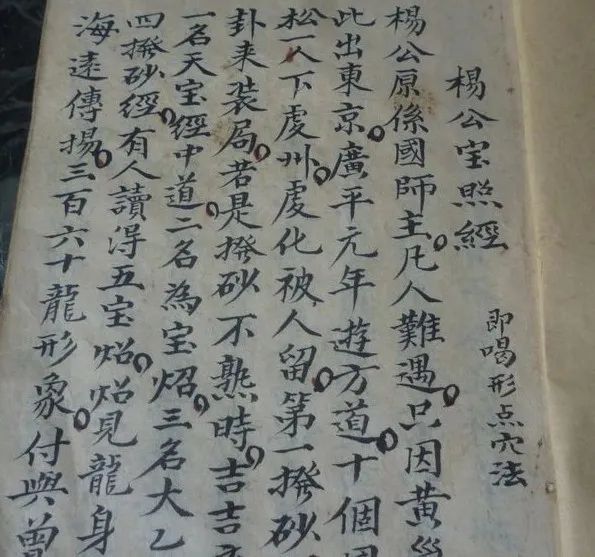 楊公宝照經
即喝形点穴法
楊公原係國師主。凡人難遇。只因黃巢
此出東京。廣平元年遊方道。十個
松一人下虔州。虔化被人留。第一撥砂
卦来裝局。若是撥砂不熟時。吉吉
一名天宝經中道。二名為宝炤。三名大乙
四撥砂經。有人讀得五宝炤。炤見龍身
海遠傳揚。三百六十龍形象。付與曾